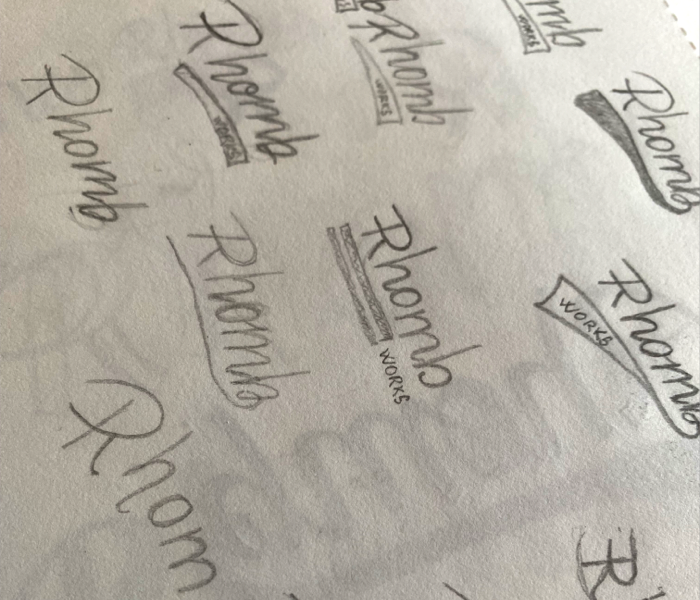 Rhomb
Rhomb
WORKS
Rhomb
WORKS
mb
WORKS
Rhomb
Rhomb
Rhomb
WORKS
Rhomb
WORKS
Rhom
R